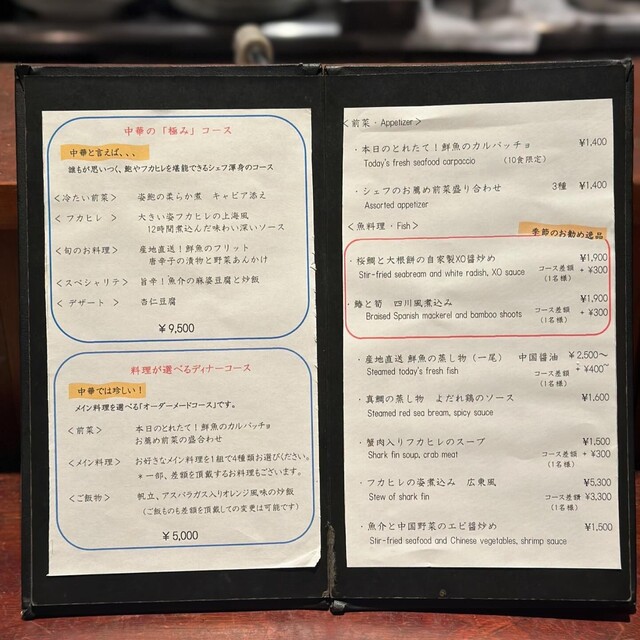 中華の「極み」コース
中華と言えば、、、
誰もが思いつく、鮑やフカヒレを堪能できるシェフ渾身のコース
<冷たい前菜> 姿鮑の柔らか煮 キャビア添え
<フカヒレ> 大きい姿フカヒレの上海風
12時間煮込んだ味わい深いソース
<旬のお料理> 産地直送！鮮魚のフリット
唐辛子の漬物と野菜あんかけ
<スペシャリテ> 旨辛！魚介の麻婆豆腐と炒飯
<デザート> 杏仁豆腐
￥9,500
料理が選べるディナーコース
中華では珍しい！
メイン料理を選べる「オーダーメードコース」です。
<前菜> 本日のとれたて！鮮魚のカルパッチョ
お薦め前菜の盛合わせ
<メイン料理> お好きなメイン料理を1組で4種類お選びください。
＊一部、差額を頂戴するお料理もございます。
<ご飯物> 帆立、アスパラガス入りオレンジ風味の炒飯
（ご飯ものも差額を頂戴しての変更は可能です）
￥5,000
<前菜・Appetizer>
・本日のとれたて！鮮魚のカルパッチョ ￥1,400
Today's fresh seafood carpaccio （10食限定）
・シェフのお薦め前菜盛り合わせ 3種 ￥1,400
Assorted appetizer
<魚料理・Fish>
季節のお勧め逸品
・桜鯛と大根餅の自家製XO醤炒め ￥1,900
Stir-fried seabream and white radish, XO sauce コース差額 + ￥300
（1名様）
・鰆と筍 四川風煮込み ￥1,900
Braised Spanish mackerel and bamboo shoots コース差額 + ￥300
（1名様）
・産地直送 鮮魚の蒸し物（一尾） 中国醤油 ￥2,500～
Steamed today's fresh fish コース差額 + ￥400～
（1名様）
・真鯛の蒸し物 よだれ鶏のソース ￥1,600
Steamed red sea bream, spicy sauce
・蟹肉入りフカヒレのスープ ￥1,500
Shark fin soup, crab meat コース差額 + ￥300
（1名様）
・フカヒレの姿煮込み 広東風 ￥5,300
Stew of shark fin コース差額 ￥3,300
（1名様）
・魚介と中国野菜のエビ醤炒め ￥1,500
Stir-fried seafood and Chinese vegetables, shrimp sauce